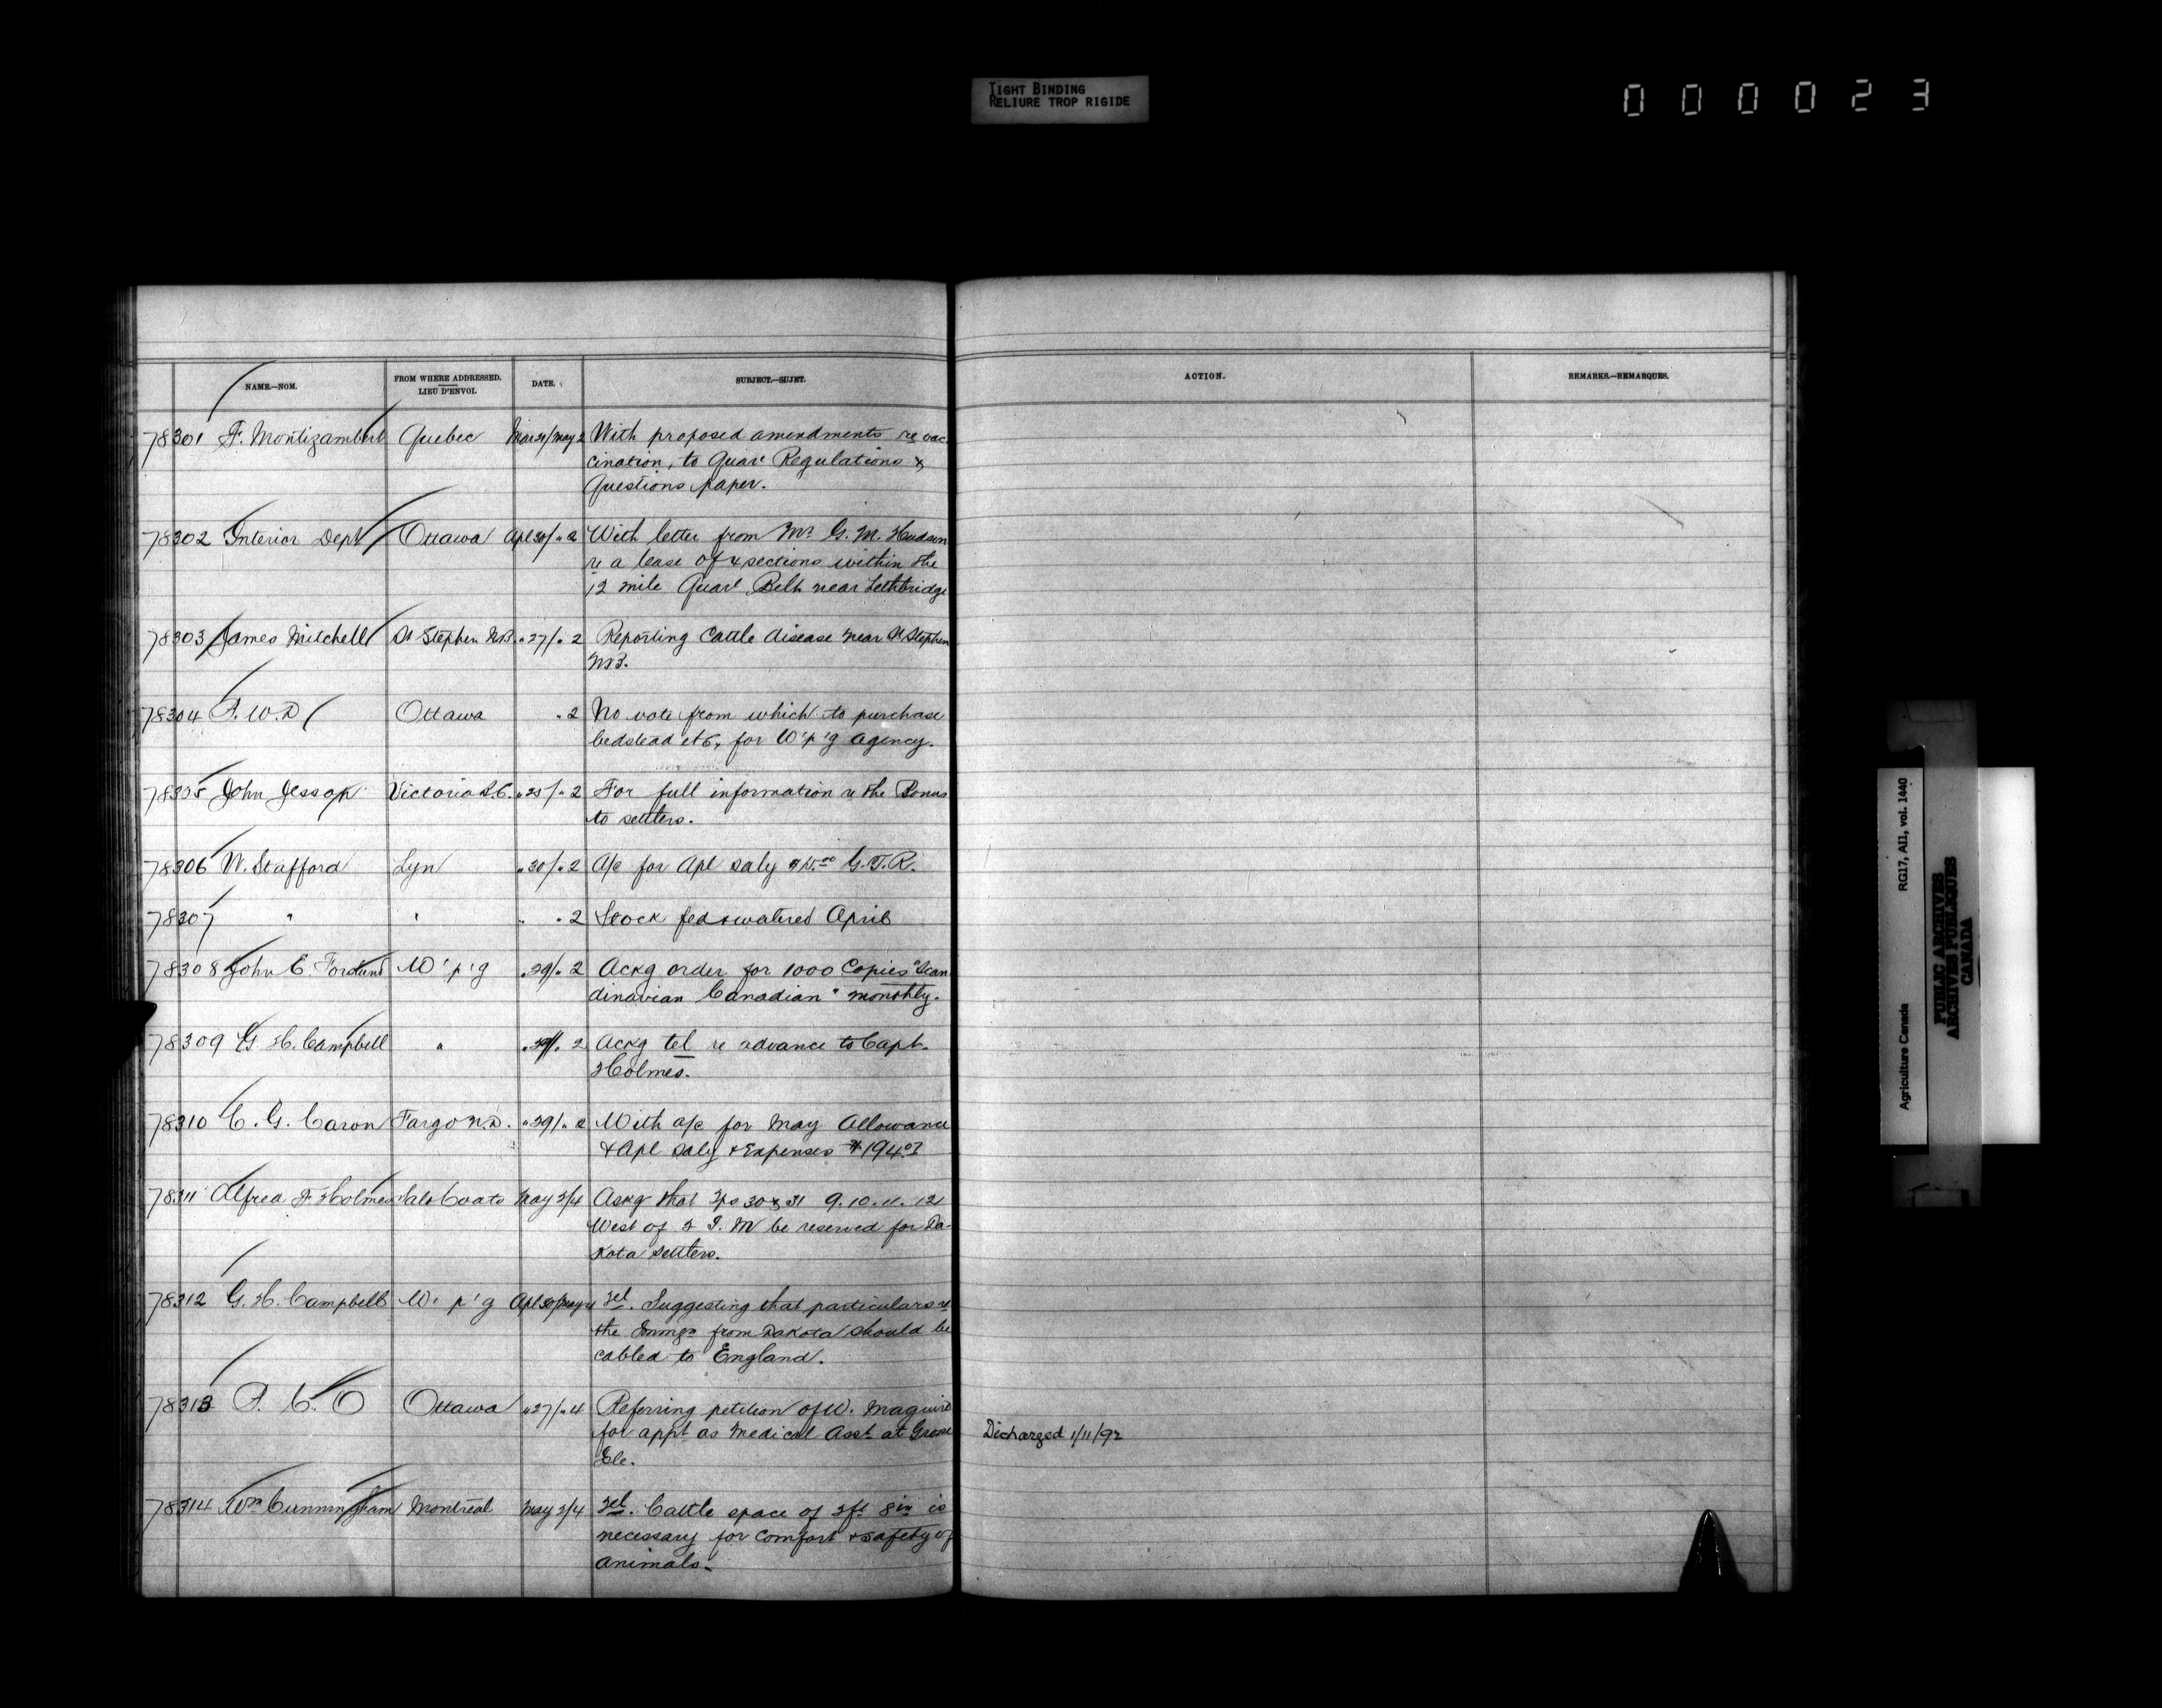 TIGHT BINDING
RELIURE TROP RIGIDE
000023
NAME.—NOM.
FROM WHERE ADDRESSED.
LIEU D'ENVOI.
DATE.
SUBJECT.—SUJET.
ACTION.
REMARKS.—REMARQUES.
78301 F. Montizambert Quebec Mar 31/May 2 With proposed amendments re vac
cination, to Quar' Regulations &
Questions paper.
78302 Interior Dept Ottawa Apl 30/ " 2 With letter from Mr G. M. Hudson
re a lease of 4 sections within the
12 mile Quar' Belt near Lethbridge
78303 James Mitchell St Stephen N.B. " 27/ " 2 Reporting Cattle disease near St Stephen
N.B.
78304 P. W. D Ottawa " 2 No vote from which to purchase
bedstead etc, for W'p'g agency.
78305 John Jessop Victoria B.C. " 25/ " 2 For full information re the Bonus
to settlers.
78306 W. Stafford Lyn " 30/ " 2 A/c for Apl Saly G.T.R.
78307 " " " " 2 Stock fed & watered April
78308 John E. W'p'g " 29/ " 2 Ackg order for 1000 Copies "Scan
dinavian Canadian" monthly.
78309 G. H. Campbell " " 29/ " 2 Ackg tel re advance to Capt.
Holmes.
78310 C. G. Caron Fargo N.D. " 29/ " 2 With a/c for May Allowance
& Apl Saly & Expenses $194.
78311 Alfred F. Holmes Saltcoats May 3/4 Askg that Tps 30 & 31 9. 10. 11. 12
West of 2 I. M be reserved for Da-
kota settlers.
78312 G. H. Campbell W'p'g Apl 30/May 4 Tel. Suggesting that particulars re
the Immgn from Dakota should be
cabled to England.
78313 P. C. O Ottawa " 27/ " 4 Referring petition of W. Maguire
for appt as Medical Asst at Grosse
Ile.
Dicharged 1/11/92
78314 Wm Cunningham Montreal May 3/4 Tel. Cattle space of 2ft 8in is
necessary for comfort & safety of
animals.
Agriculture Canada RG17, A11, vol. 1440
PUBLIC ARCHIVES
ARCHIVES PUBLIQUES
CANADA